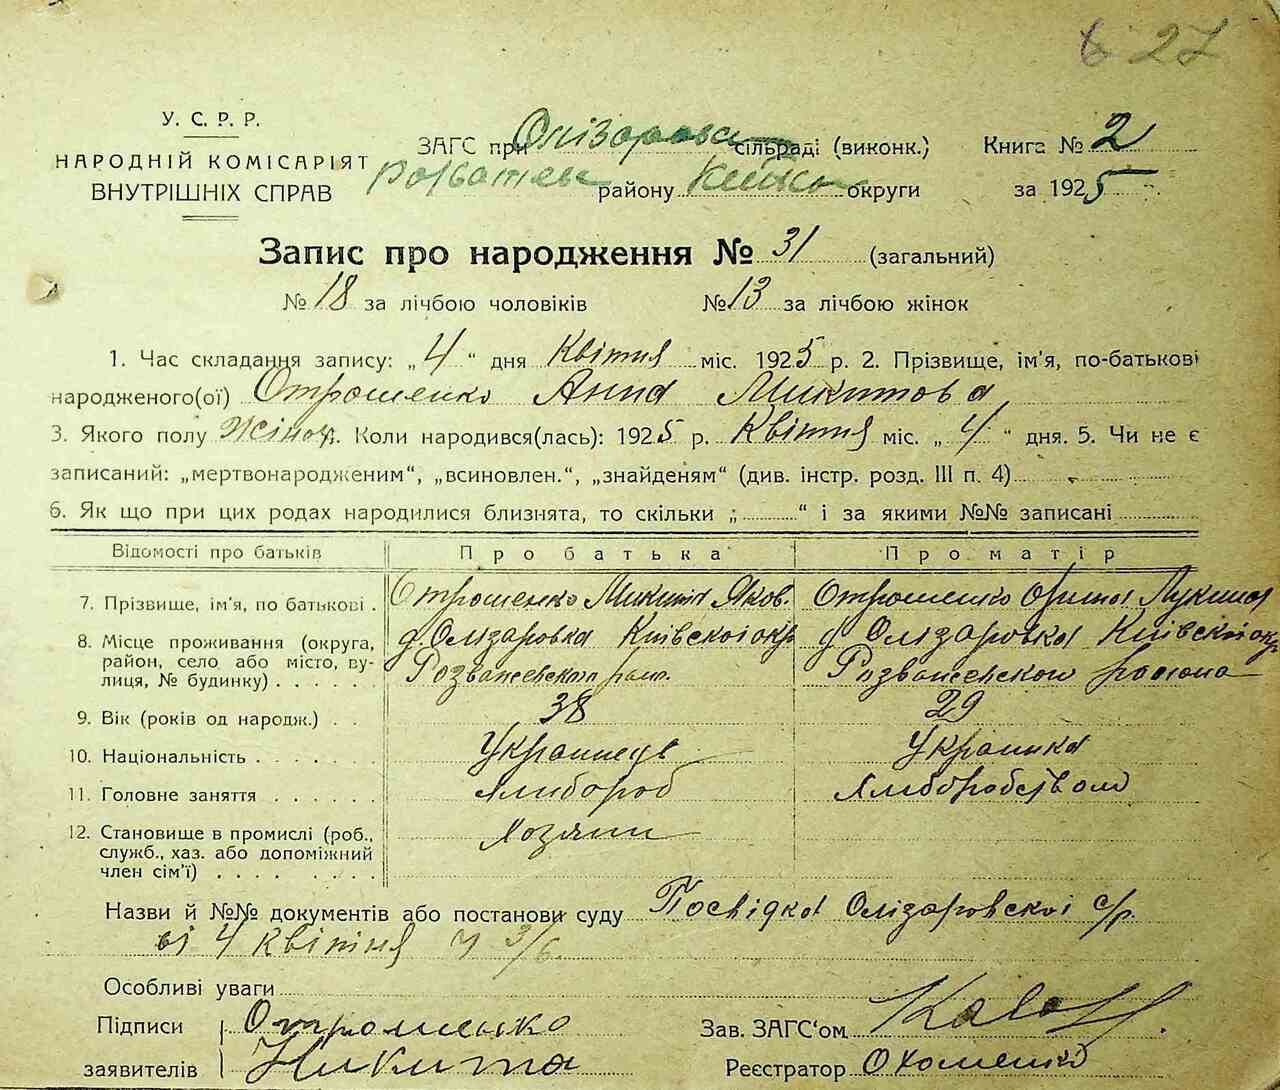 27
У. С. Р. Р.
НАРОДНІЙ КОМІСАРІЯТ
ВНУТРІШНІХ СПРАВ
ЗАГС при Олізаровс сільраді (виконк.) Книга № 2
району округи за 1925
Запис про народження № 31 (загальний)
№ 18 за лічбою чоловіків № 13 за лічбою жінок
1. Час складання запису: „4“ дня Квітня міс. 1925 р. 2. Прізвище, ім'я, по-батькові
народженого(ої) Отрошенко Анна Микитова
3. Якого полу Жіноч. Коли народився(лась): 1925 р. Квітня міс. „4“ дня. 5. Чи не є
записаний: „мертвонародженим“, „всиновлен.“, „знайденям“ (див. інстр. розд. III п. 4)
6. Як що при цих родах народилися близнята, то скільки „ “ і за якими №№ записані
Відомості про батьків Про батька Про матір
7. Прізвище, ім'я, по батькові . Отрошенко Микита Яков. Отрошенко Орина Лукина
8. Місце проживання (округа, д. Олізаровка Київскоі окр д. Олізаровка Київскоі окр
район, село або місто, ву- Розваженского раю. Розваженского района
лиця, № будинку) . . . . . .
9. Вік (років од народж.) . . 38 29
10. Національність . . . . . Украинець Украинка
11. Головне заняття . . . . . Хлибороб Хлиборобством
12. Становище в промислі (роб., Хозяин
служб., хаз. або допоміжний
член сім'ї) . . . . . . . .
Назви й №№ документів або постанови суду Посвідка Олізаровскоі с/р
ві 4 квітня
Особливі уваги
Підписи Отрошенко Зав. ЗАГС'ом
заявителів Никита Реєстратор Охоменко